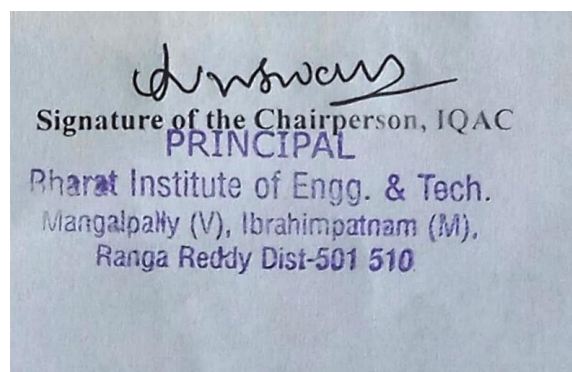 Signature of the Chairperson, IQAC
PRINCIPAL
Bharat Institute of Engg. & Tech.
Mangalpally (V), Ibrahimpatnam (M),
Ranga Reddy Dist-501 510